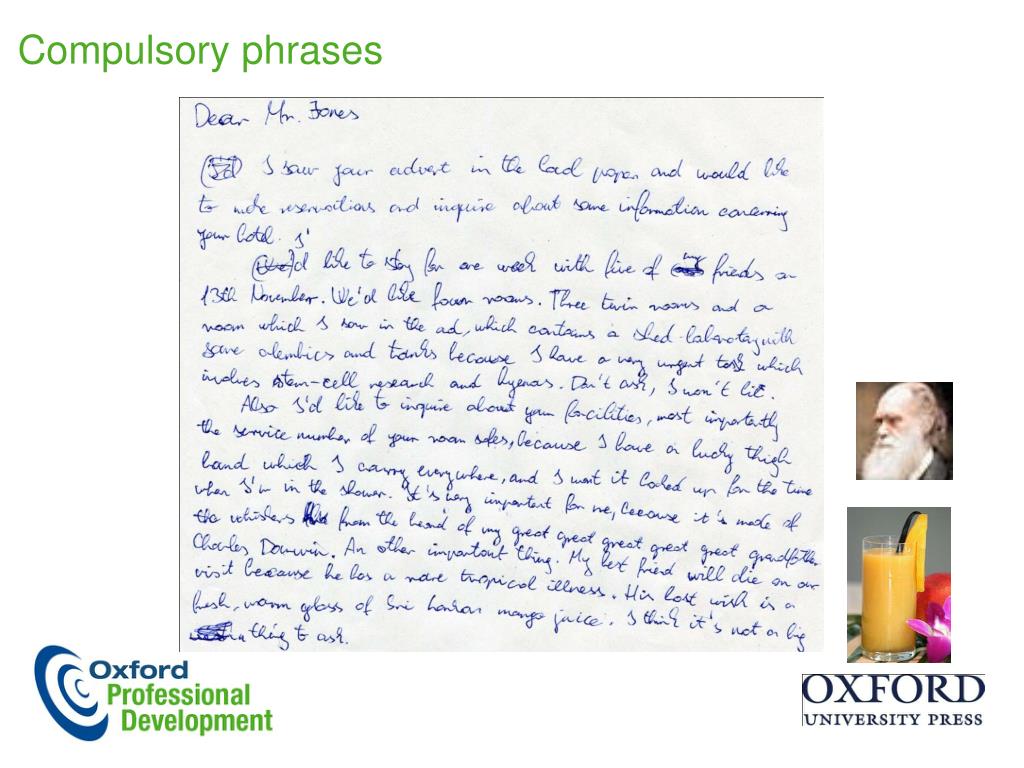 Compulsory phrases
Dear Mr. Jones
I saw your advert in the local paper and would like
to make reservations and inquire about some information concerning
your hotel. I'
d like to stay for one week with five of my friends on
13th November. We'd like four rooms. Three twin rooms and a
room which I saw in the ad, which contains a shed-laboratory with
some alembics and tanks because I have a very urgent task which
involves stem-cell research and hyenas. Don't ask, I won't lie.
Also I'd like to inquire about your facilities, most importantly
the service number of your room safes, because I have a lucky thigh
band which I carry everywhere, and I want it locked up for the time
when I'm in the shower. It's very important for me, because it's made of
the whiskers from the beard of my great great great great great grandfather
Charles Darwin. An other important thing. My best friend will die on our
visit because he has a rare tropical illness. His last wish is a
fresh, warm glass of Sri Lankan mango juice. I think it's not a big
thing to ask.
Oxford
Professional
Development
OXFORD
UNIVERSITY PRESS